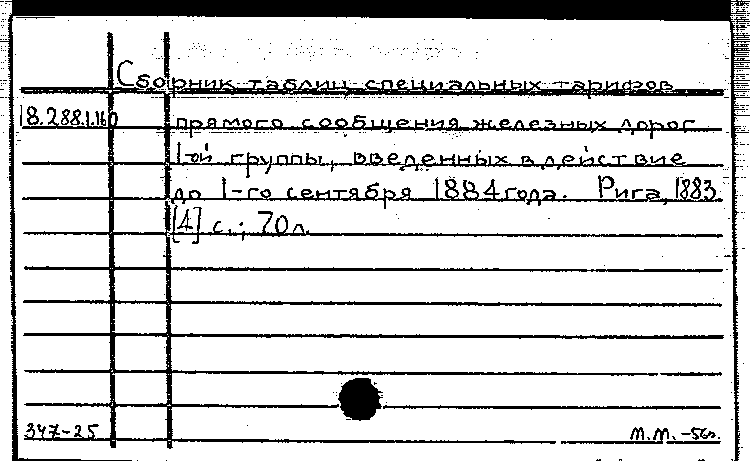 Сборник таблиц специальных тарифов
18.288.1.160 прямого сообщения железных дорог
1-ой группы, введенных в действие
до 1-го сентября 1884 года. Рига, 1883.
[4] с.; 70 л.
347-25 М.М. -560.